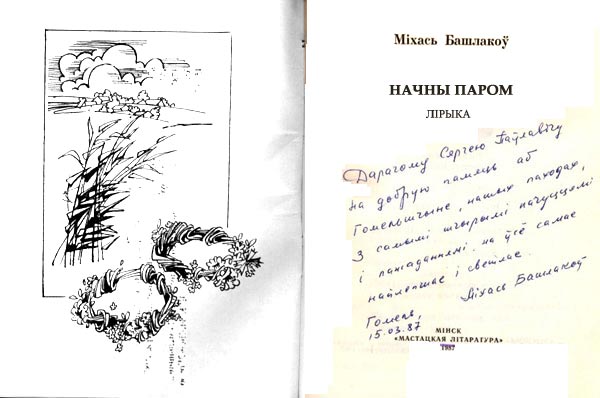 Міхась Башлакоў
НАЧНЫ ПАРОМ
ЛІРЫКА
Дарагому Сяргею Паўлавічу
на добрую памяць аб
Гомельшчыне, нашых паходах,
З самымі шчырымі пачуццямі
і пажаданнямі на ўсё самае
найлепшае і светлае.
Міхась Башлакоў
Гомель,
15.03.87
МІНСК
«МАСТАЦКАЯ ЛІТАРАТУРА»
1987